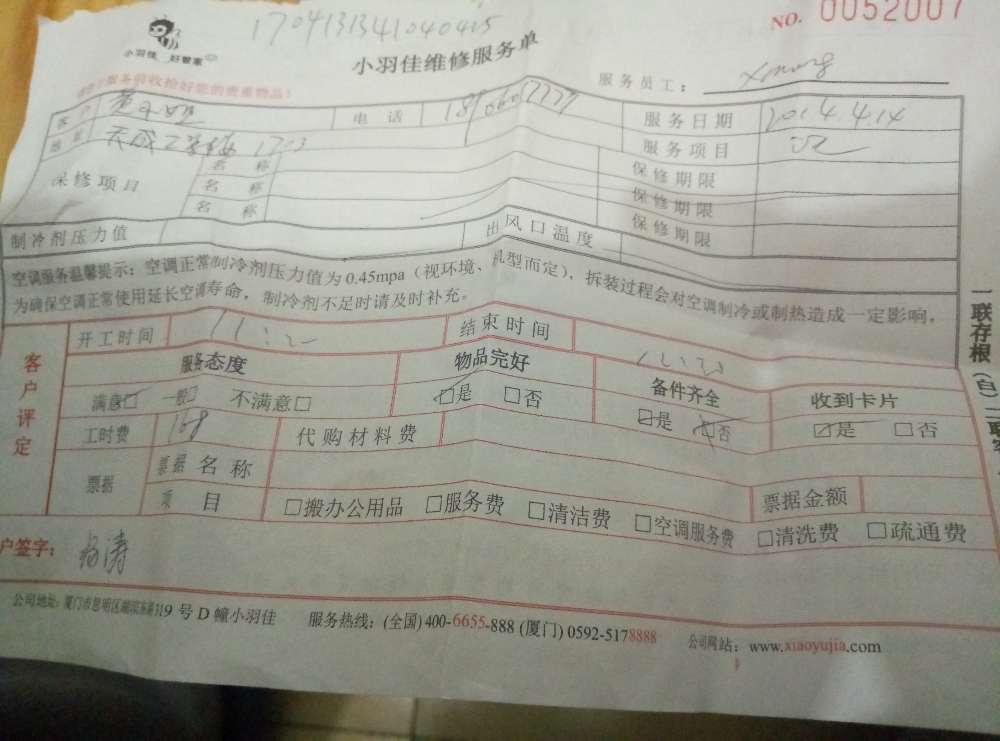 1704131341040405
NO. 0052007
小羽佳 好管家
小羽佳维修服务单
服务员工：
服务前收拾好您的贵重物品！
客户 电话 服务日期 2014.4.14
地址 1703 服务项目
保修项目 名称 保修期限
名称 保修期限
名称 保修期限
制冷剂压力值 出风口温度
空调服务温馨提示：空调正常制冷剂压力值为0.45mpa（视环境、机型而定），拆装过程会对空调制冷或制热造成一定影响，
为确保空调正常使用延长空调寿命，制冷剂不足时请及时补充。
一联存根（白）二联客
客户评定
开工时间 结束时间
服务态度 物品完好 备件齐全 收到卡片
满意□ 一般□ 不满意□ □是 □否 □是 □否 □是 □否
工时费 169 代购材料费
票据 票据名称 票据金额
项目 □搬办公用品 □服务费 □清洁费 □空调服务费 □清洗费 □疏通费
户签字：
公司地址：厦门市思明区湖滨东路319号D幢小羽佳 服务热线：(全国)400-6655-888 (厦门) 0592-5178888 公司网站：www.xiaoyujia.com